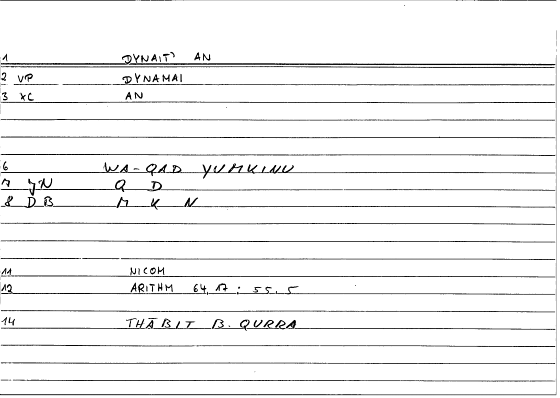 1 DYNAIT' AN
2 VP DYNAMAI
3 XC AN
6 WA-QAD YUMKINU
7 YN Q D
8 DB M K N
11 NICOM
12 ARITHM 64,17 : 55.5
14 THĀBIT B. QURRA